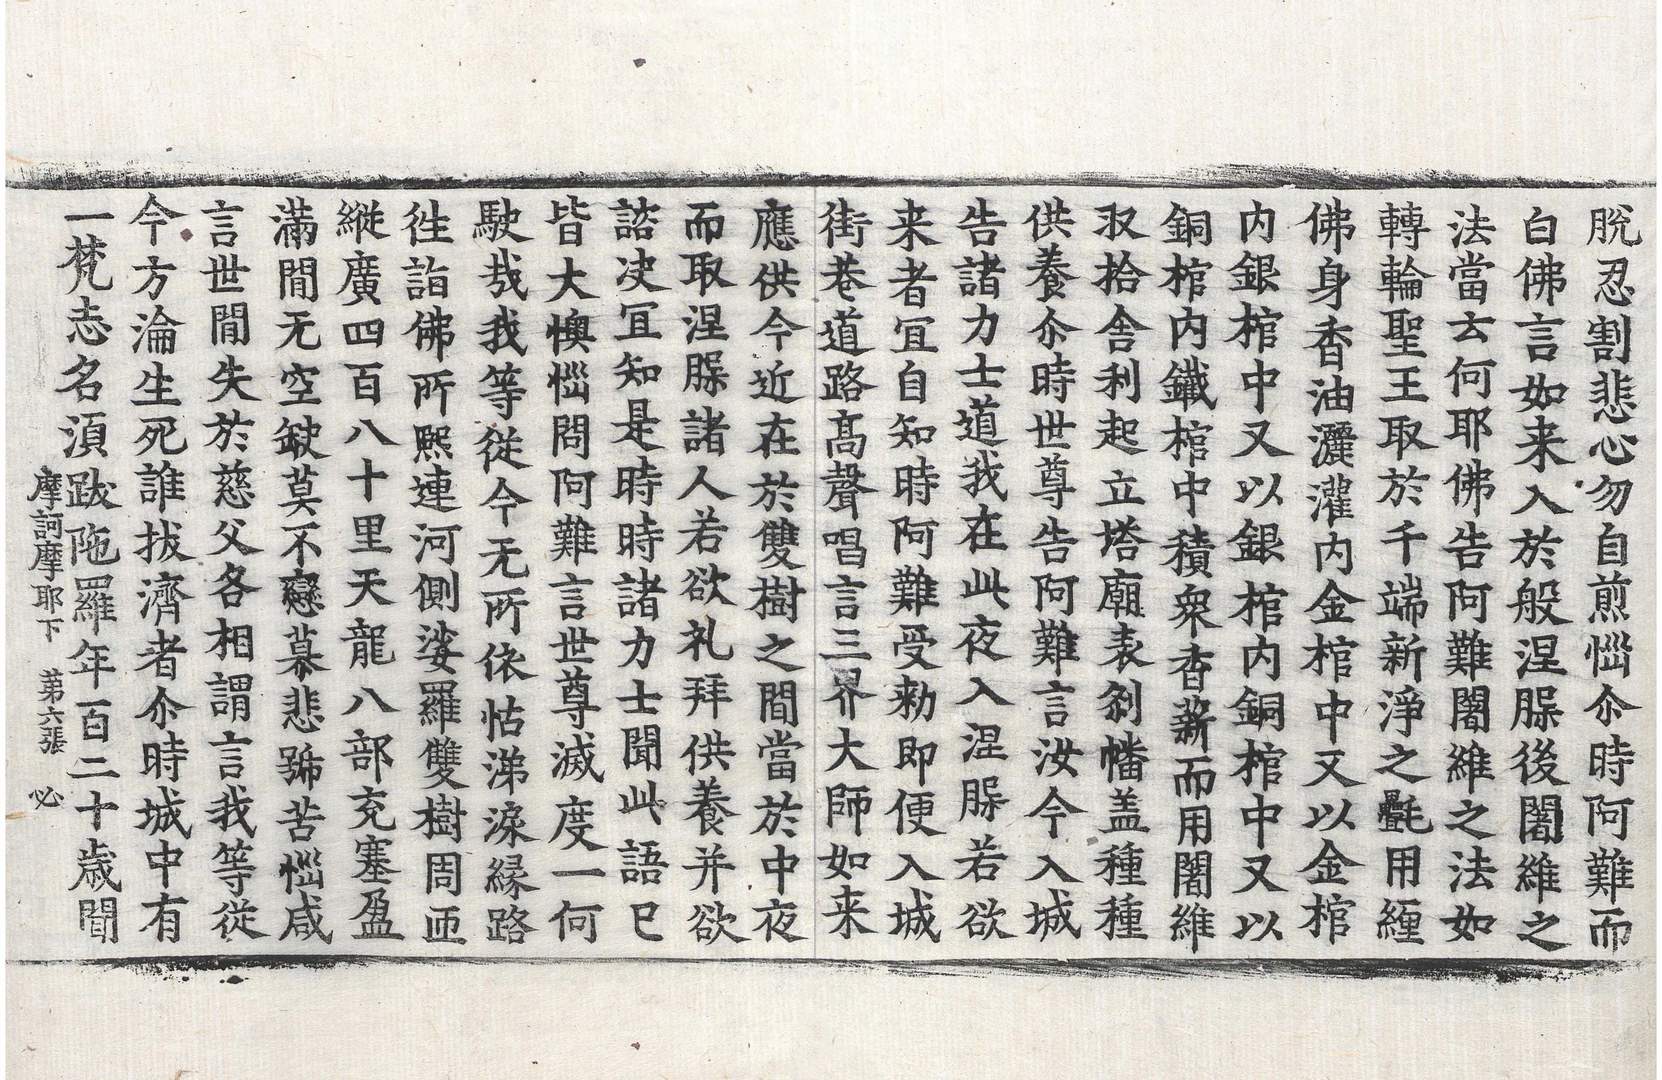 脫忍割悲心勿自煎惱尒時阿難而
白佛言如来入於般涅槃後闍維之
法當云何耶佛告阿難闍維之法如
轉輪聖王取於千端新淨之㲲用纏
佛身香油灑灌内金棺中又以金棺
内銀棺中又以銀棺内銅棺中又以
銅棺内鐵棺中積衆香薪而用闍維
収拾舎利起立塔廟表剎幡盖種種
供養尒時世尊告阿難言汝今入城
告諸力士道我在此夜入涅槃若欲
来者冝自知時阿難受勑即便入城
街巷道路髙聲唱言三界大師如来
應供今近在於雙樹之間當於中夜
而取涅槃諸人若欲礼拜供養并欲
諮决冝知是時時諸力士聞此語已
皆大懊惱問阿難言世尊滅度一何
駛㢤我等從今无所依怙涕淚緣路
徃詣佛所熈連河側娑羅雙樹周迊
縱廣四百八十里天龍八部充塞盈
滿間无空缺莫不戀慕悲號苦惱咸
言世間失於慈父各相謂言我等從
今方淪生死誰拔濟者尒時城中有
一梵志名湏跋陁羅年百二十歳聞
摩訶摩耶下 第六張 必